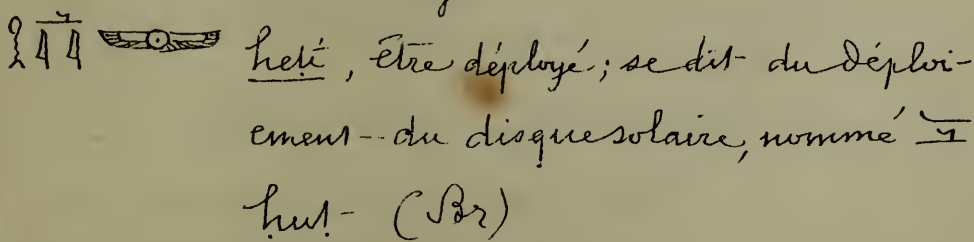 𓎛𓏏𓇋𓇋 ḥeti, être déployé; se dit du déploi-
ement du disque solaire, nommé
ḥut (Br)